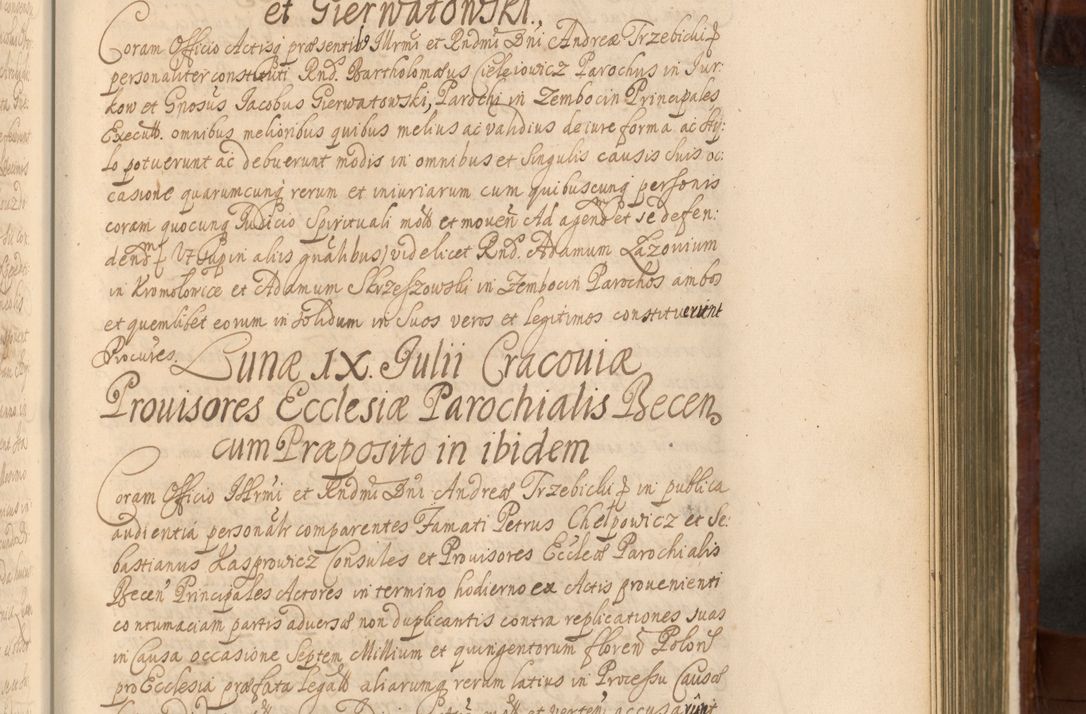 et Gierwatowski.
Coram Officio Actisq præsentibꝰ Illrmi et Rndmi Dni Andreæ Trzebicki ꝑ
personaliter constituti Rnd. Bartholomæus Cieleiowicz Parochus in Jur:
kow et Gnosus Iacobus Gierwatowski, Parochi in Zembocin Principales
omnibus melioribus quibus melius ac validius de iure forma ac sty:
lo potuerunt ac debuerunt modis in omnibus et singulis causis suis oc:
casione quarumcunq rerum et iniuriarum cum quibuscunq personis
coram quocunq Iudicio spirituali mõ et moueñ Ad agend et se defen:
dend in aliis quãlibus) videlicet Rnd. Adamum Lazovium
in Kromolowice et Adamum Skrzeszowski in Zembocin Parochos ambos
et quemlibet eorum in solidum in suos veros et legitimos constituerunt
Procures.
Lunæ IX. Julii Cracoviæ
Prouisores Ecclesiæ Parochialis Becen,
cum Præposito in ibidem
Coram Officio Illrmi et Rndmi Dni Andreæ Trzebicki ꝑ in publica
audientia personalr comparentes Famati Petrus Chełpowicz et Se:
bastianus Kasprowicz Consules et Provisores Eccleæ Parochialis
Becen Principales Actores in termino hodierno ex Actis prouenienti
contumaciam partis adversæ non duplicantis contra replicationes suas
in Causa occasione Septem Millium et quingentorum floreñ Poloñ
pro Ecclesia præfata legat aliarumq rerum latius in Processu Causæ
et accusarunt